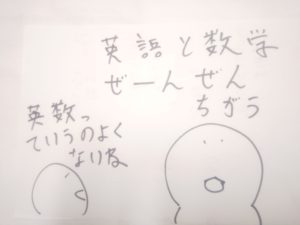 英語と数学
ぜーんぜん
ちがう
英数っ
ていうのよく
ないね